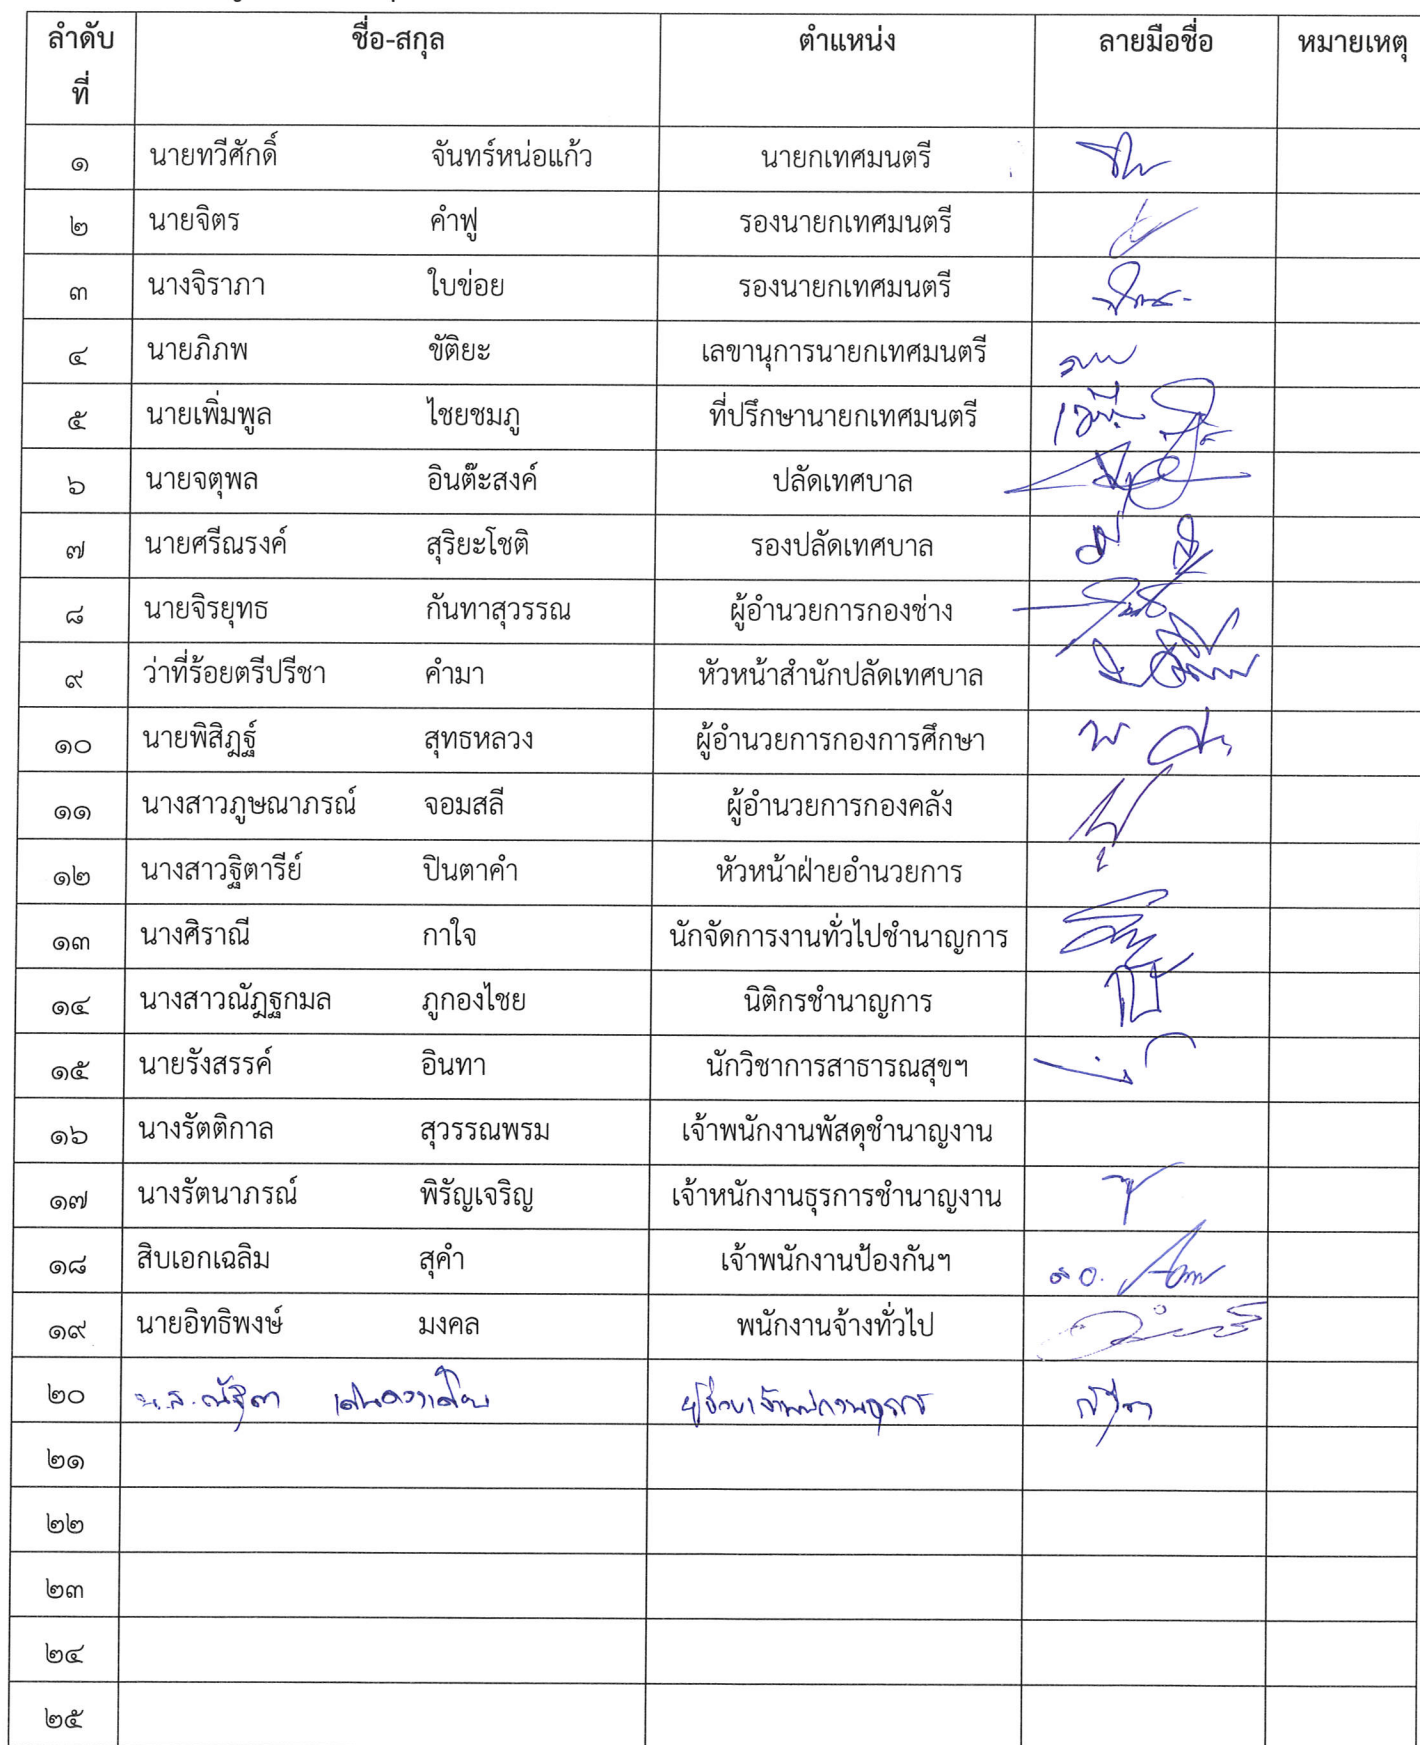 ลำดับที่ ชื่อ-สกุล ตำแหน่ง ลายมือชื่อ หมายเหตุ
๑ นายทวีศักดิ์ จันทร์หน่อแก้ว นายกเทศมนตรี
๒ นายจิตร คำฟู รองนายกเทศมนตรี
๓ นางจิราภา ใบข่อย รองนายกเทศมนตรี
๔ นายภิภพ ขัติยะ เลขานุการนายกเทศมนตรี
๕ นายเพิ่มพูล ไชยชมภู ที่ปรึกษานายกเทศมนตรี
๖ นายจตุพล อินต๊ะสงค์ ปลัดเทศบาล
๗ นายศรีณรงค์ สุริยะโชติ รองปลัดเทศบาล
๘ นายจิรยุทธ กันทาสุวรรณ ผู้อำนวยการกองช่าง
๙ ว่าที่ร้อยตรีปรีชา คำมา หัวหน้าสำนักปลัดเทศบาล
๑๐ นายพิสิฎฐ์ สุทธหลวง ผู้อำนวยการกองการศึกษา
๑๑ นางสาวภูษณาภรณ์ จอมสลี ผู้อำนวยการกองคลัง
๑๒ นางสาวฐิตารีย์ ปินตาคำ หัวหน้าฝ่ายอำนวยการ
๑๓ นางศิราณี กาใจ นักจัดการงานทั่วไปชำนาญการ
๑๔ นางสาวณัฎฐกมล ภูกองไชย นิติกรชำนาญการ
๑๕ นายรังสรรค์ อินทา นักวิชาการสาธารณสุขฯ
๑๖ นางรัตติกาล สุวรรณพรม เจ้าพนักงานพัสดุชำนาญงาน
๑๗ นางรัตนาภรณ์ พิรัญเจริญ เจ้าหนักงานธุรการชำนาญงาน
๑๘ สิบเอกเฉลิม สุคำ เจ้าพนักงานป้องกันฯ ส.อ.
๑๙ นายอิทธิพงษ์ มงคล พนักงานจ้างทั่วไป
๒๐ น.ส. ณัฐิตา ผู้ช่วยเจ้าพนักงานธุรการ
๒๑
๒๒
๒๓
๒๔
๒๕